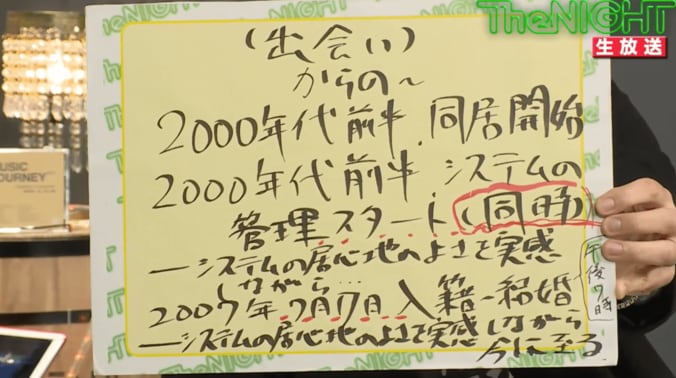 TheNIGHT
生放送
(出会い)
からの~
2000年代前半.同居開始
2000年代前半.システムの
管理スタート(同時)
ーシステムの居心地のよさを実感
しながら…
午後7時
2007年7月7日入籍-結婚
ーシステムの居心地のよさを実感しながら
今に至る
MUSIC
JOURNEY